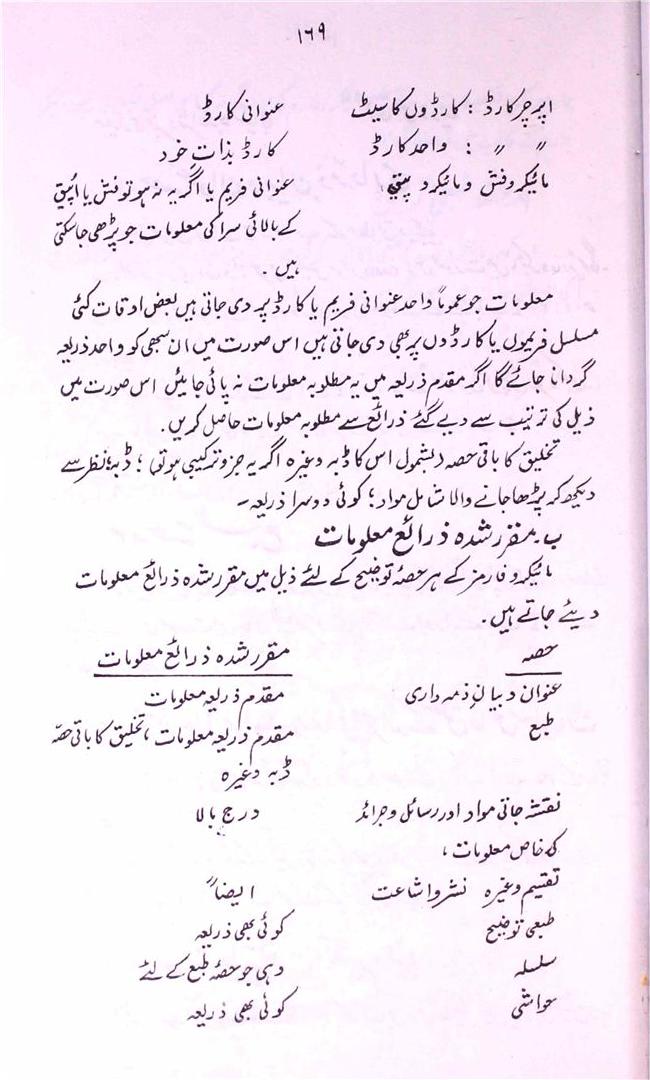 ۱۶۹
اپرچر کارڈ : کارڈوں کا سیٹ عنوانی کارڈ
〃 〃 : واحد کارڈ کارڈ بذات خود
مائیکروفش و مائیکرو عنوانی فریم یا اگر یہ نہ ہو تو فش یا اپیق
کے بالائی سرا کی معلومات جو پڑھی جا سکتی
ہیں ۔
معلومات جو عموماً واحد عنوانی فریم یا کارڈ پر دی جاتی ہیں بعض اوقات کئی
مسلسل فریموں یا کارڈوں پر بھی دی جاتی ہیں اس صورت میں ان سبھی کو واحد ذریعہ
گردانا جائے گا اگر مقدم ذریعہ میں یہ مطلوبہ معلومات نہ پائی جائیں اس صورت میں
ذیل کی ترتیب سے دیے گئے ذرائع سے مطلوبہ معلومات حاصل کریں۔
تخلیق کا باقی حصہ (بشمول اس کا ڈبہ وغیرہ اگر یہ جزو ترکیبی ہو تو) ؛ ڈبہ؛ نظر سے
دیکھ کر پڑھا جانے والا شامل مواد؛ کوئی دوسرا ذریعہ۔
ب۔ مقرر شدہ ذرائع معلومات
مائیکروفارمز کے ہر حصۂ توضیح کے لئے ذیل میں مقرر شدہ ذرائع معلومات
دیئے جاتے ہیں۔
حصہ مقرر شدہ ذرائع معلومات
عنوان و بیان ذمہ داری مقدم ذریعہ معلومات
طبع مقدم ذریعہ معلومات ، تخلیق کا باقی حصّہ
ڈبہ وغیرہ
نقشہ جاتی مواد اور رسائل و جرائد درج بالا
کی خاص معلومات ،
تقسیم وغیرہ نشر و اشاعت ایضاً
طبعی توضیح کوئی بھی ذریعہ
سلسلہ وہی جو حصۂ طبع کے لئے
حواشی کوئی بھی ذریعہ